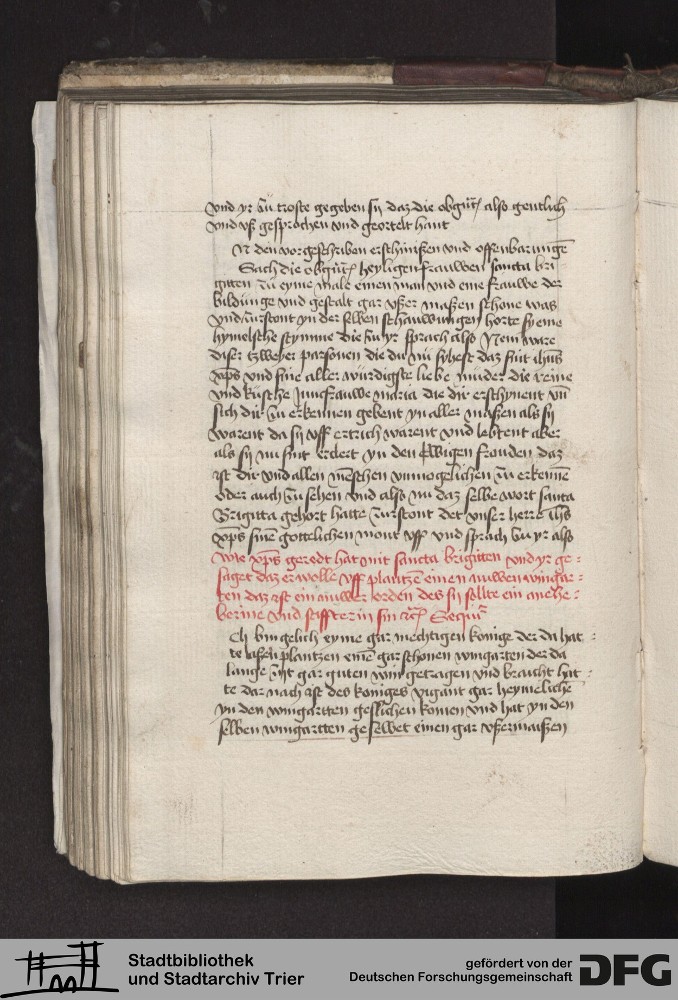 vnd yr zü troste gegeben sij daz die obgñt also gentlich
vnd vß gesprochen vnd geortelt hant
N den vorgeschriben erschinißen vnd offenbarungē
Sach die obgñt heyligen frauwen sancta bri
gitten zü eyme male einen man vnd eine frauwe der
bildunge vnd gestalt gar vßer maßen schone was
vnd zurstont yn der selben schauwungen horte sy eine
hymelsche stymme die zu yr sprach also Nem ware
diser tzweyer parsonen die du nü syhest daz sint ihūs
xp̄s vnd sine aller würdigste liebe müder die reine
vnd küsche Juncfrauwe maria die dir erschynent vn̄
sich dir zü erkennen gebent yn aller maßen als sij
warent da sij vff ertrich warent vnd lebtent aber
als sij nu sint ercleret yn den ewigen frouden daz
ist dir vnd allen mēschen vnmogelichen zü erkennē
oder auch zü sehen vnd also nu daz selbe wort santa
Brigitta gehort hatte zurstont det vnser herre ihs
xp̄s sinē gottlichen mont vff vnd sprach zu yr also
wie xp̄s geredt hat mit sancta brigitten vnd yr ge-
saget daz er wolle vff plantzē einen nuwen wingar-
ten daz ist ein nuwer orden des sij sollte ein anehe-
berine vnd stiffterin sin etc Sequit̄
Ch bin gelich eyme gar mechtigen konige der da hat-
te laßen plantzen einē gar schonen wingarten der da
lange zijt gar guten win getragen vnd bracht hat-
te dar nach ist des koniges vigant gar heymelichē
yn den wingartten geslichen komen vnd hat yn den
selben wingartten geseewet einen gar vßermaißen
Stadtbibliothek
und Stadtarchiv Trier
gefördert von der
Deutschen Forschungsgemeinschaft
DFG